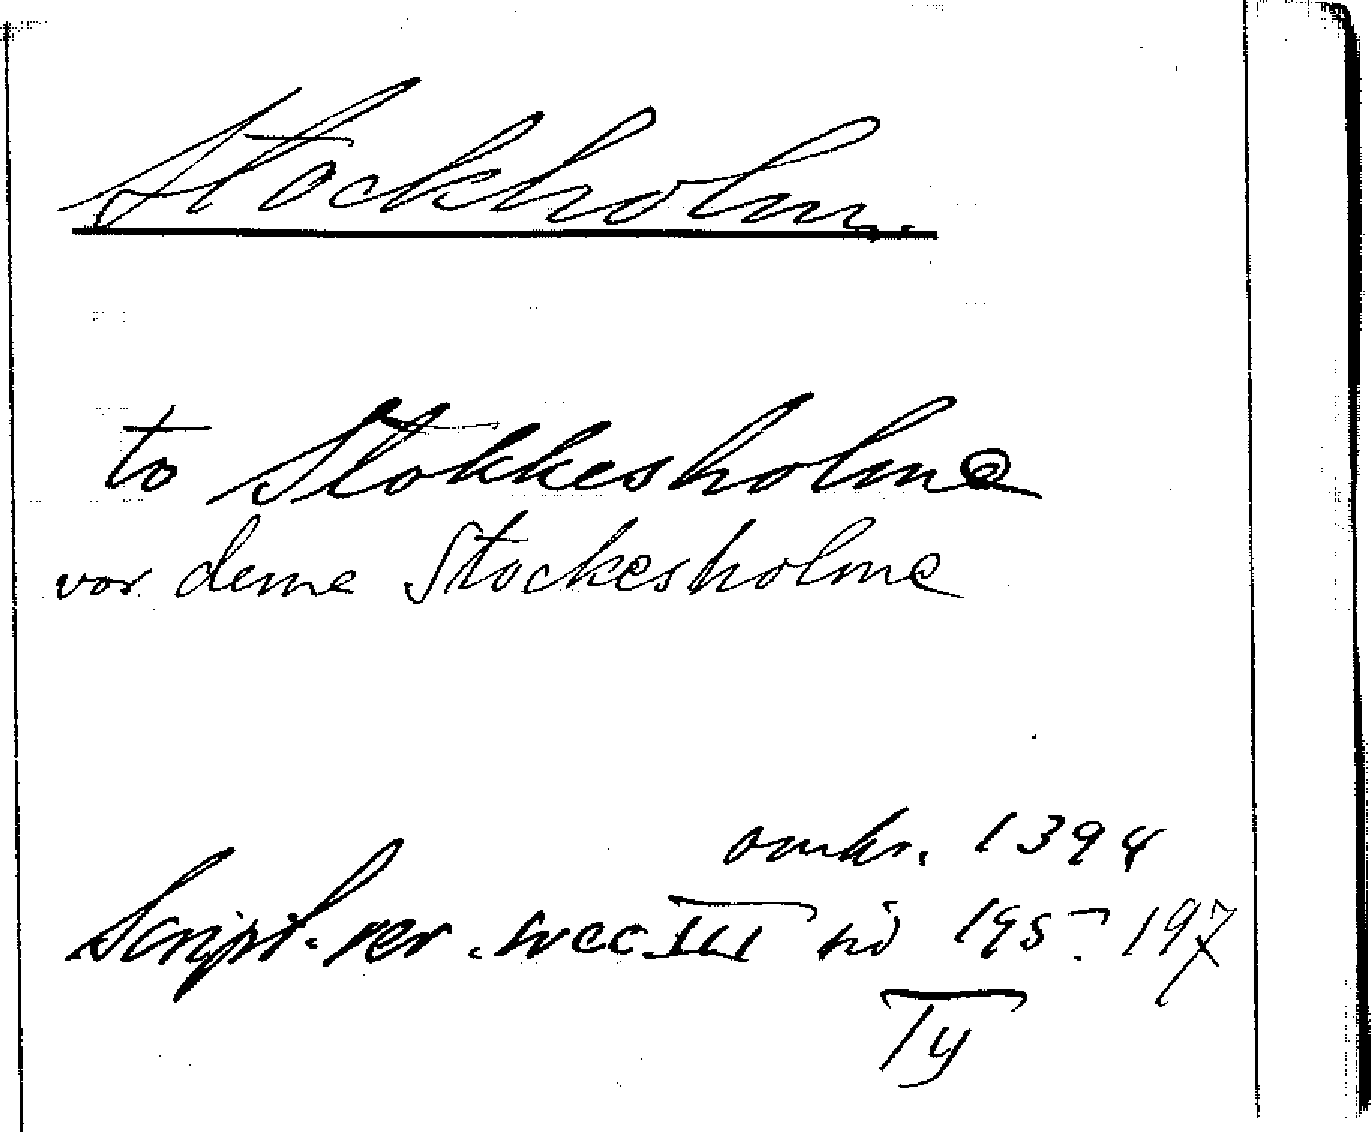 Stockholm.
to Stokkesholme
vor deme Stockesholme
omkr. 1394
Script. rer. svec III sid 195, 197
Ty